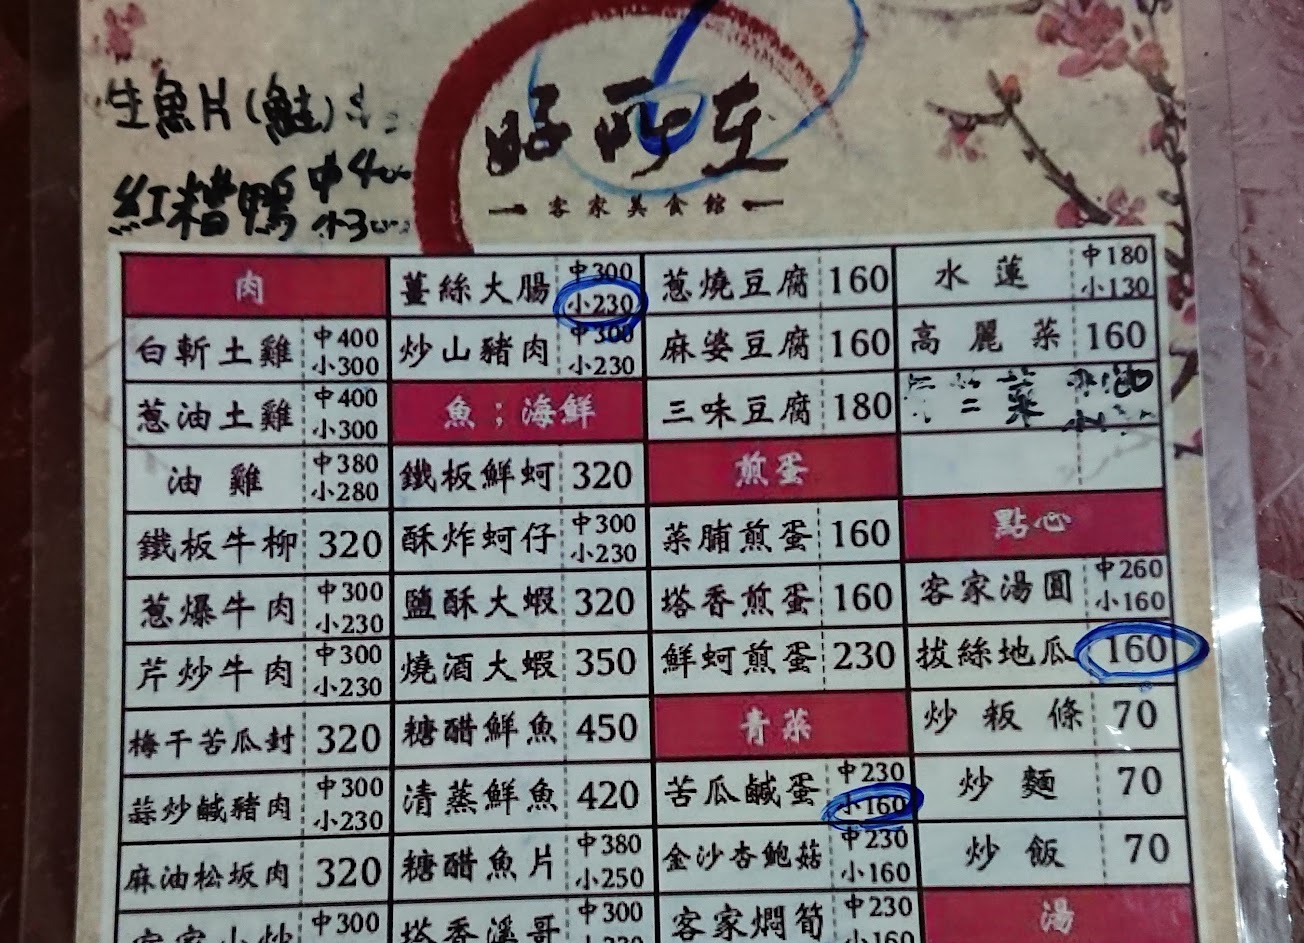 生魚片(鮭)
紅糟鴨 中400
小300
好所在
客家美食館
肉
白斬土雞 中400 小300
蔥油土雞 中400 小300
油雞 中380 小280
鐵板牛柳 320
蔥爆牛肉 中300 小230
芹炒牛肉 中300 小230
梅干苦瓜封 320
蒜炒鹹豬肉 中300 小230
麻油松坂肉 320
客家小炒 中300
薑絲大腸 中300 小230
炒山豬肉 中300 小230
魚；海鮮
鐵板鮮蚵 320
酥炸蚵仔 中300 小230
鹽酥大蝦 320
燒酒大蝦 350
糖醋鮮魚 450
清蒸鮮魚 420
糖醋魚片 中380 小250
塔香溪哥 中300 230
蔥燒豆腐 160
麻婆豆腐 160
三味豆腐 180
煎蛋
菜脯煎蛋 160
塔香煎蛋 160
鮮蚵煎蛋 230
青菜
苦瓜鹹蛋 中230 小160
金沙杏鮑菇 中230 小160
客家燜筍 中230 小160
水蓮 中180 小130
高麗菜 160
菜
點心
客家湯圓 中260 小160
拔絲地瓜 160
炒粄條 70
炒麵 70
炒飯 70
湯